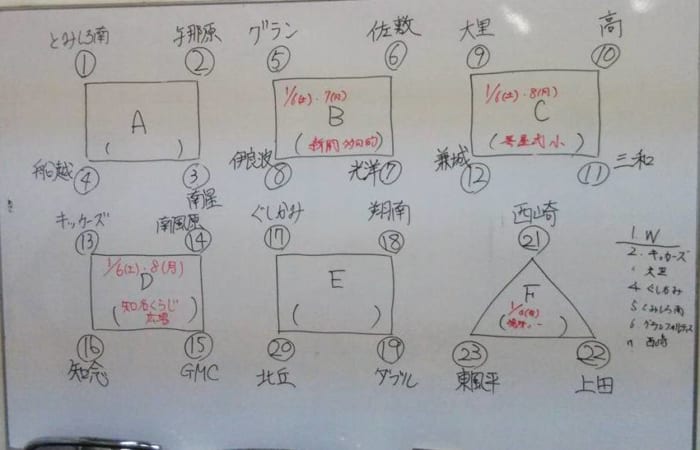 とみしろ南 与那原 グラン 佐敷 大里 高
① ② ⑤ ⑥ ⑨ ⑩
A
( )
1/6(土)・7(日)
B
1/6(土)・8(月)
C
④ ③ 伊良波 ⑧ 光洋 ⑦ 兼城 ⑫ ⑪ 三和
南星
キッケーズ 南風原 ぐしかみ 翔南 西崎
⑬ ⑭ ⑰ ⑱ ㉑
1/6(土)・8(月)
D
知名くらじ
広場
E
( )
F
⑯ ⑮ ⑳ ⑲ ㉓ ㉒
知念 GMC 北丘 ダブル 東風平 上田
1. W
2. キッカーズ
大里
4 ぐしかみ
5 とみしろ南
6
西崎